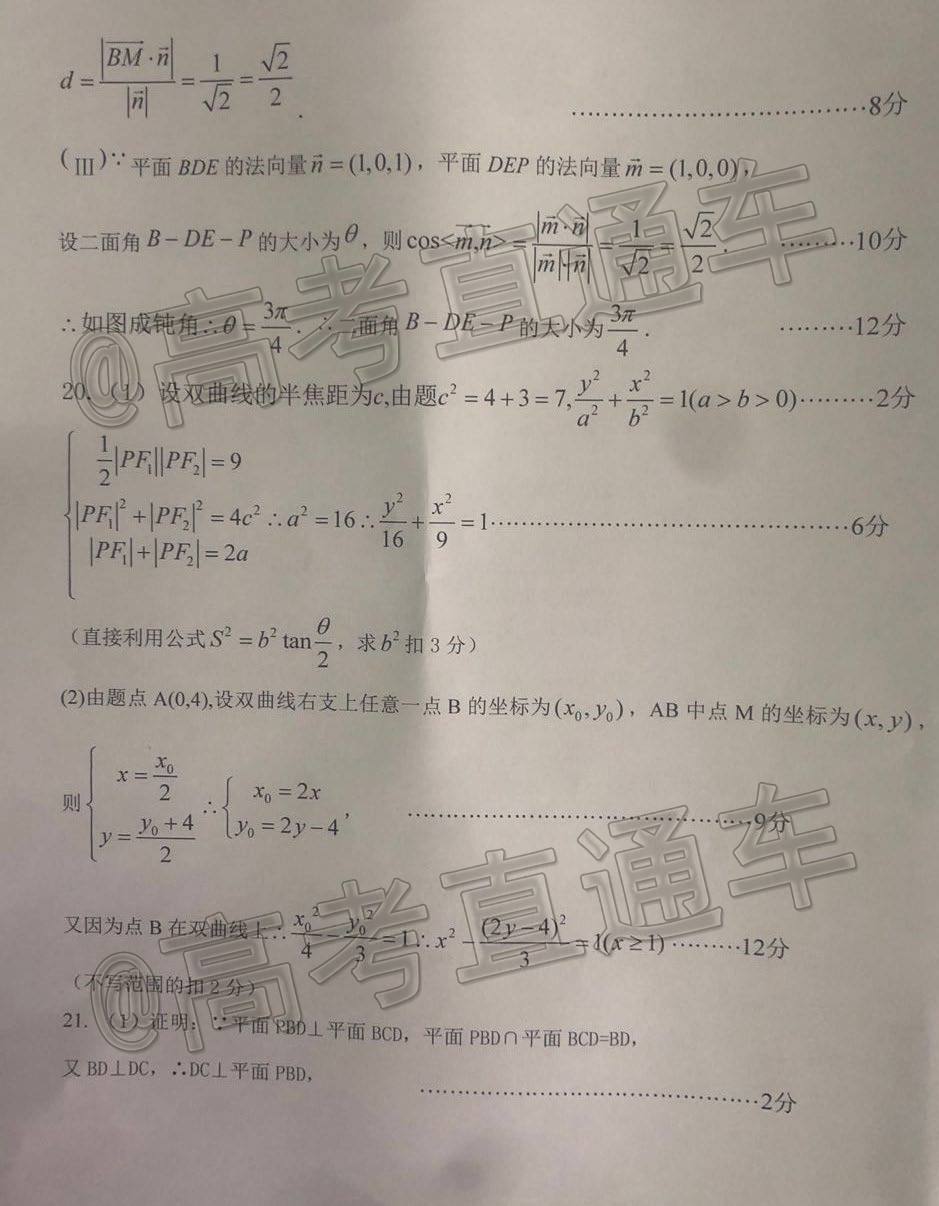 d = |BM⃗·n⃗| / |n⃗| = 1/√2 = √2/2. ………………………………8分
(Ⅲ)∵平面 BDE 的法向量 n⃗ = (1,0,1)，平面 DEP 的法向量 m⃗ = (1,0,0)，
设二面角 B−DE−P 的大小为θ，则 cos<m⃗,n⃗> = |m⃗·n⃗| / |m⃗|·|n⃗| = 1/√2 = √2/2. ………10分
∴如图成钝角∴θ = 3π/4. ∴二面角 B−DE−P 的大小为 3π/4. ………12分
20.（1）设双曲线的半焦距为c,由题c² = 4+3 = 7, y²/a² + x²/b² = 1(a > b > 0)………2分
{ 1/2|PF₁||PF₂| = 9
|PF₁|² + |PF₂|² = 4c² ∴a² = 16 ∴ y²/16 + x²/9 = 1………………………………6分
|PF₁| + |PF₂| = 2a
（直接利用公式 S² = b² tan θ/2，求 b² 扣 3 分）
(2)由题点 A(0,4),设双曲线右支上任意一点 B 的坐标为 (x₀, y₀)，AB 中点 M 的坐标为 (x, y)，
则 { x = x₀/2, y = (y₀+4)/2 ∴ { x₀ = 2x, y₀ = 2y−4 ， ………………………………9分
又因为点 B 在双曲线上∴ x₀²/4 − y₀²/3 = 1∴ x² − (2y−4)²/3 = 1(x ≥ 1) ………12分
（不写范围的扣 2 分）
21.（1）证明：∵平面 PBD⊥平面 BCD，平面 PBD∩平面 BCD=BD，
又 BD⊥DC，∴DC⊥平面 PBD， ………………………………2分
@高考直通车
@高考直通车